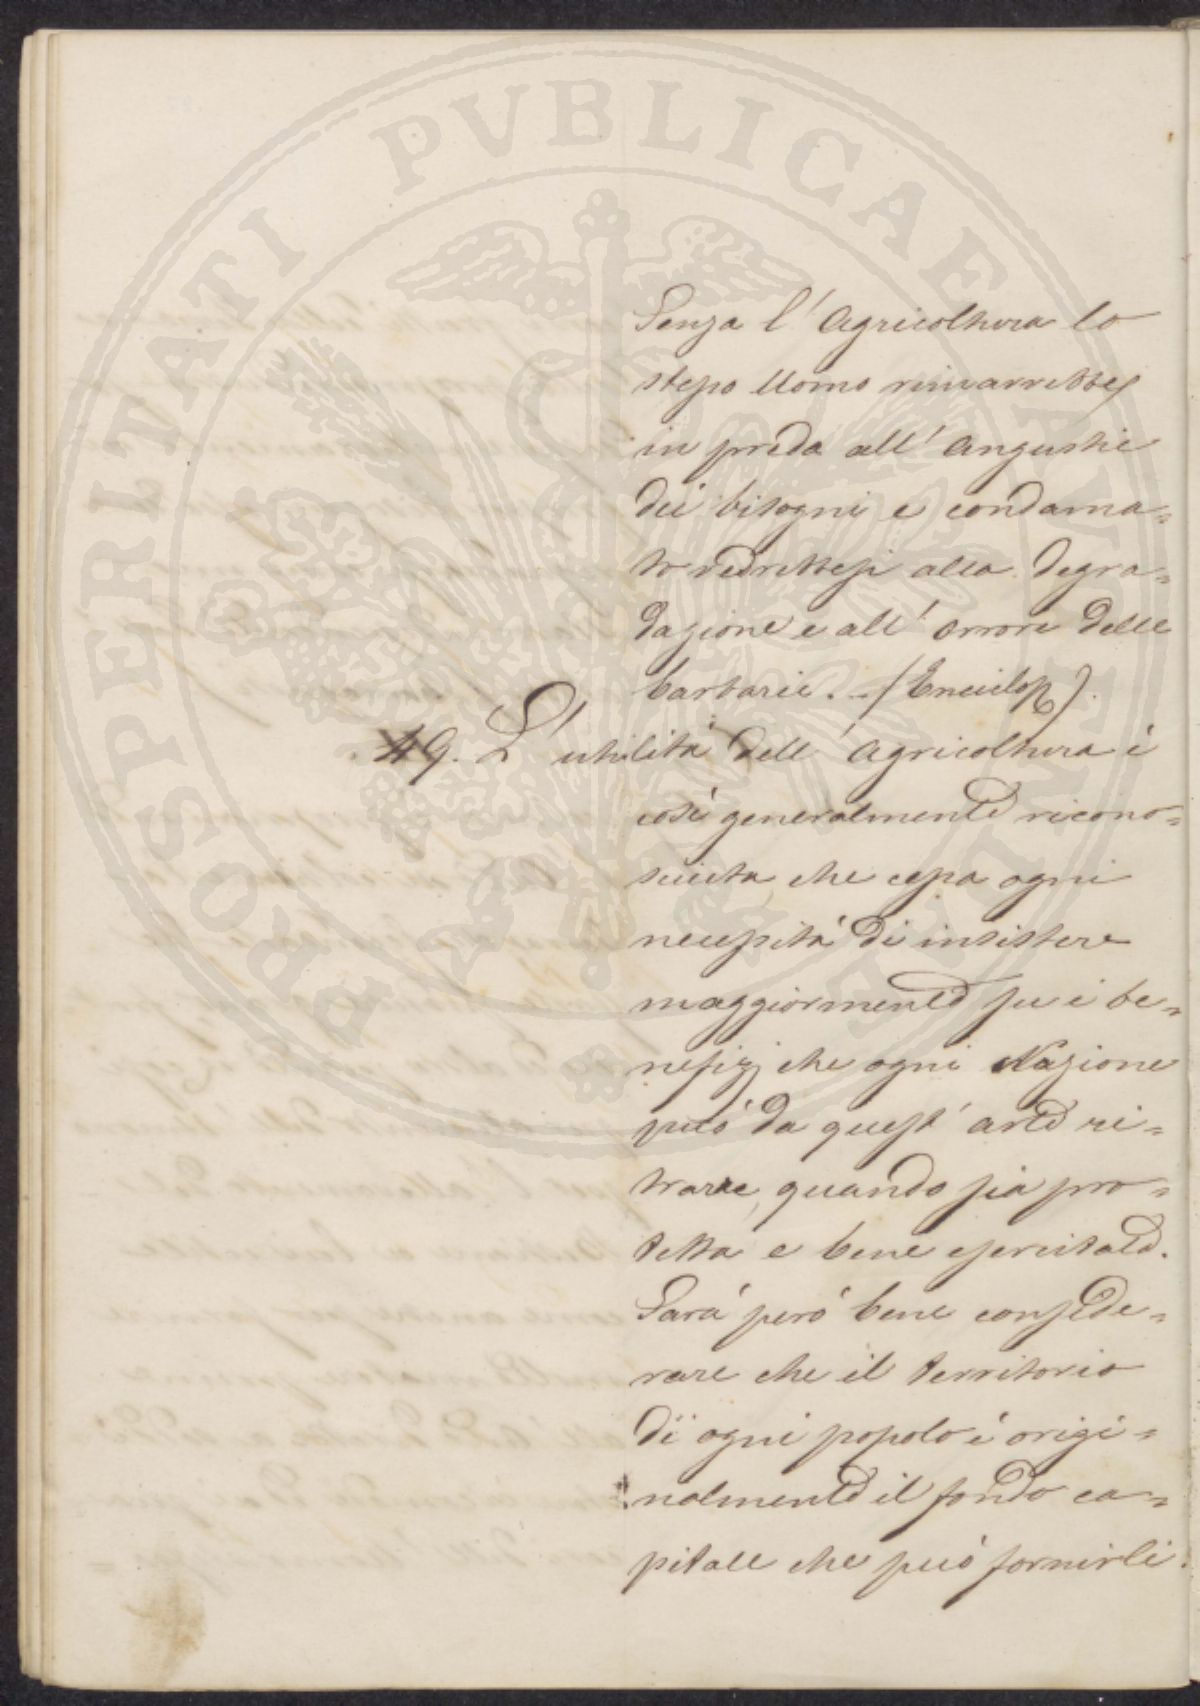 PROSPERITATI PVBLICAE AVGENDAE
Senza l'Agricoltura lo
stesso Uomo rimarrebbe
in preda all'angustie
dei bisogni e condanna=
to vedrebbesi alla degra=
dazione e all'orrore delle
barbarie. - (Enciclop.).
49. L'utilità dell'Agricoltura é
così generalmente ricono=
sciuta, che cessa ogni
necessità di insistere
maggiormente su i be=
nefizj che ogni Nazione
può da quest'arte ri=
trarre, quando sia pro=
tetta e bene esercitata.
Sarà però bene conside=
rare che il territorio
di ogni popolo é origi=
nalmente il fondo ca=
pitale che può fornirli